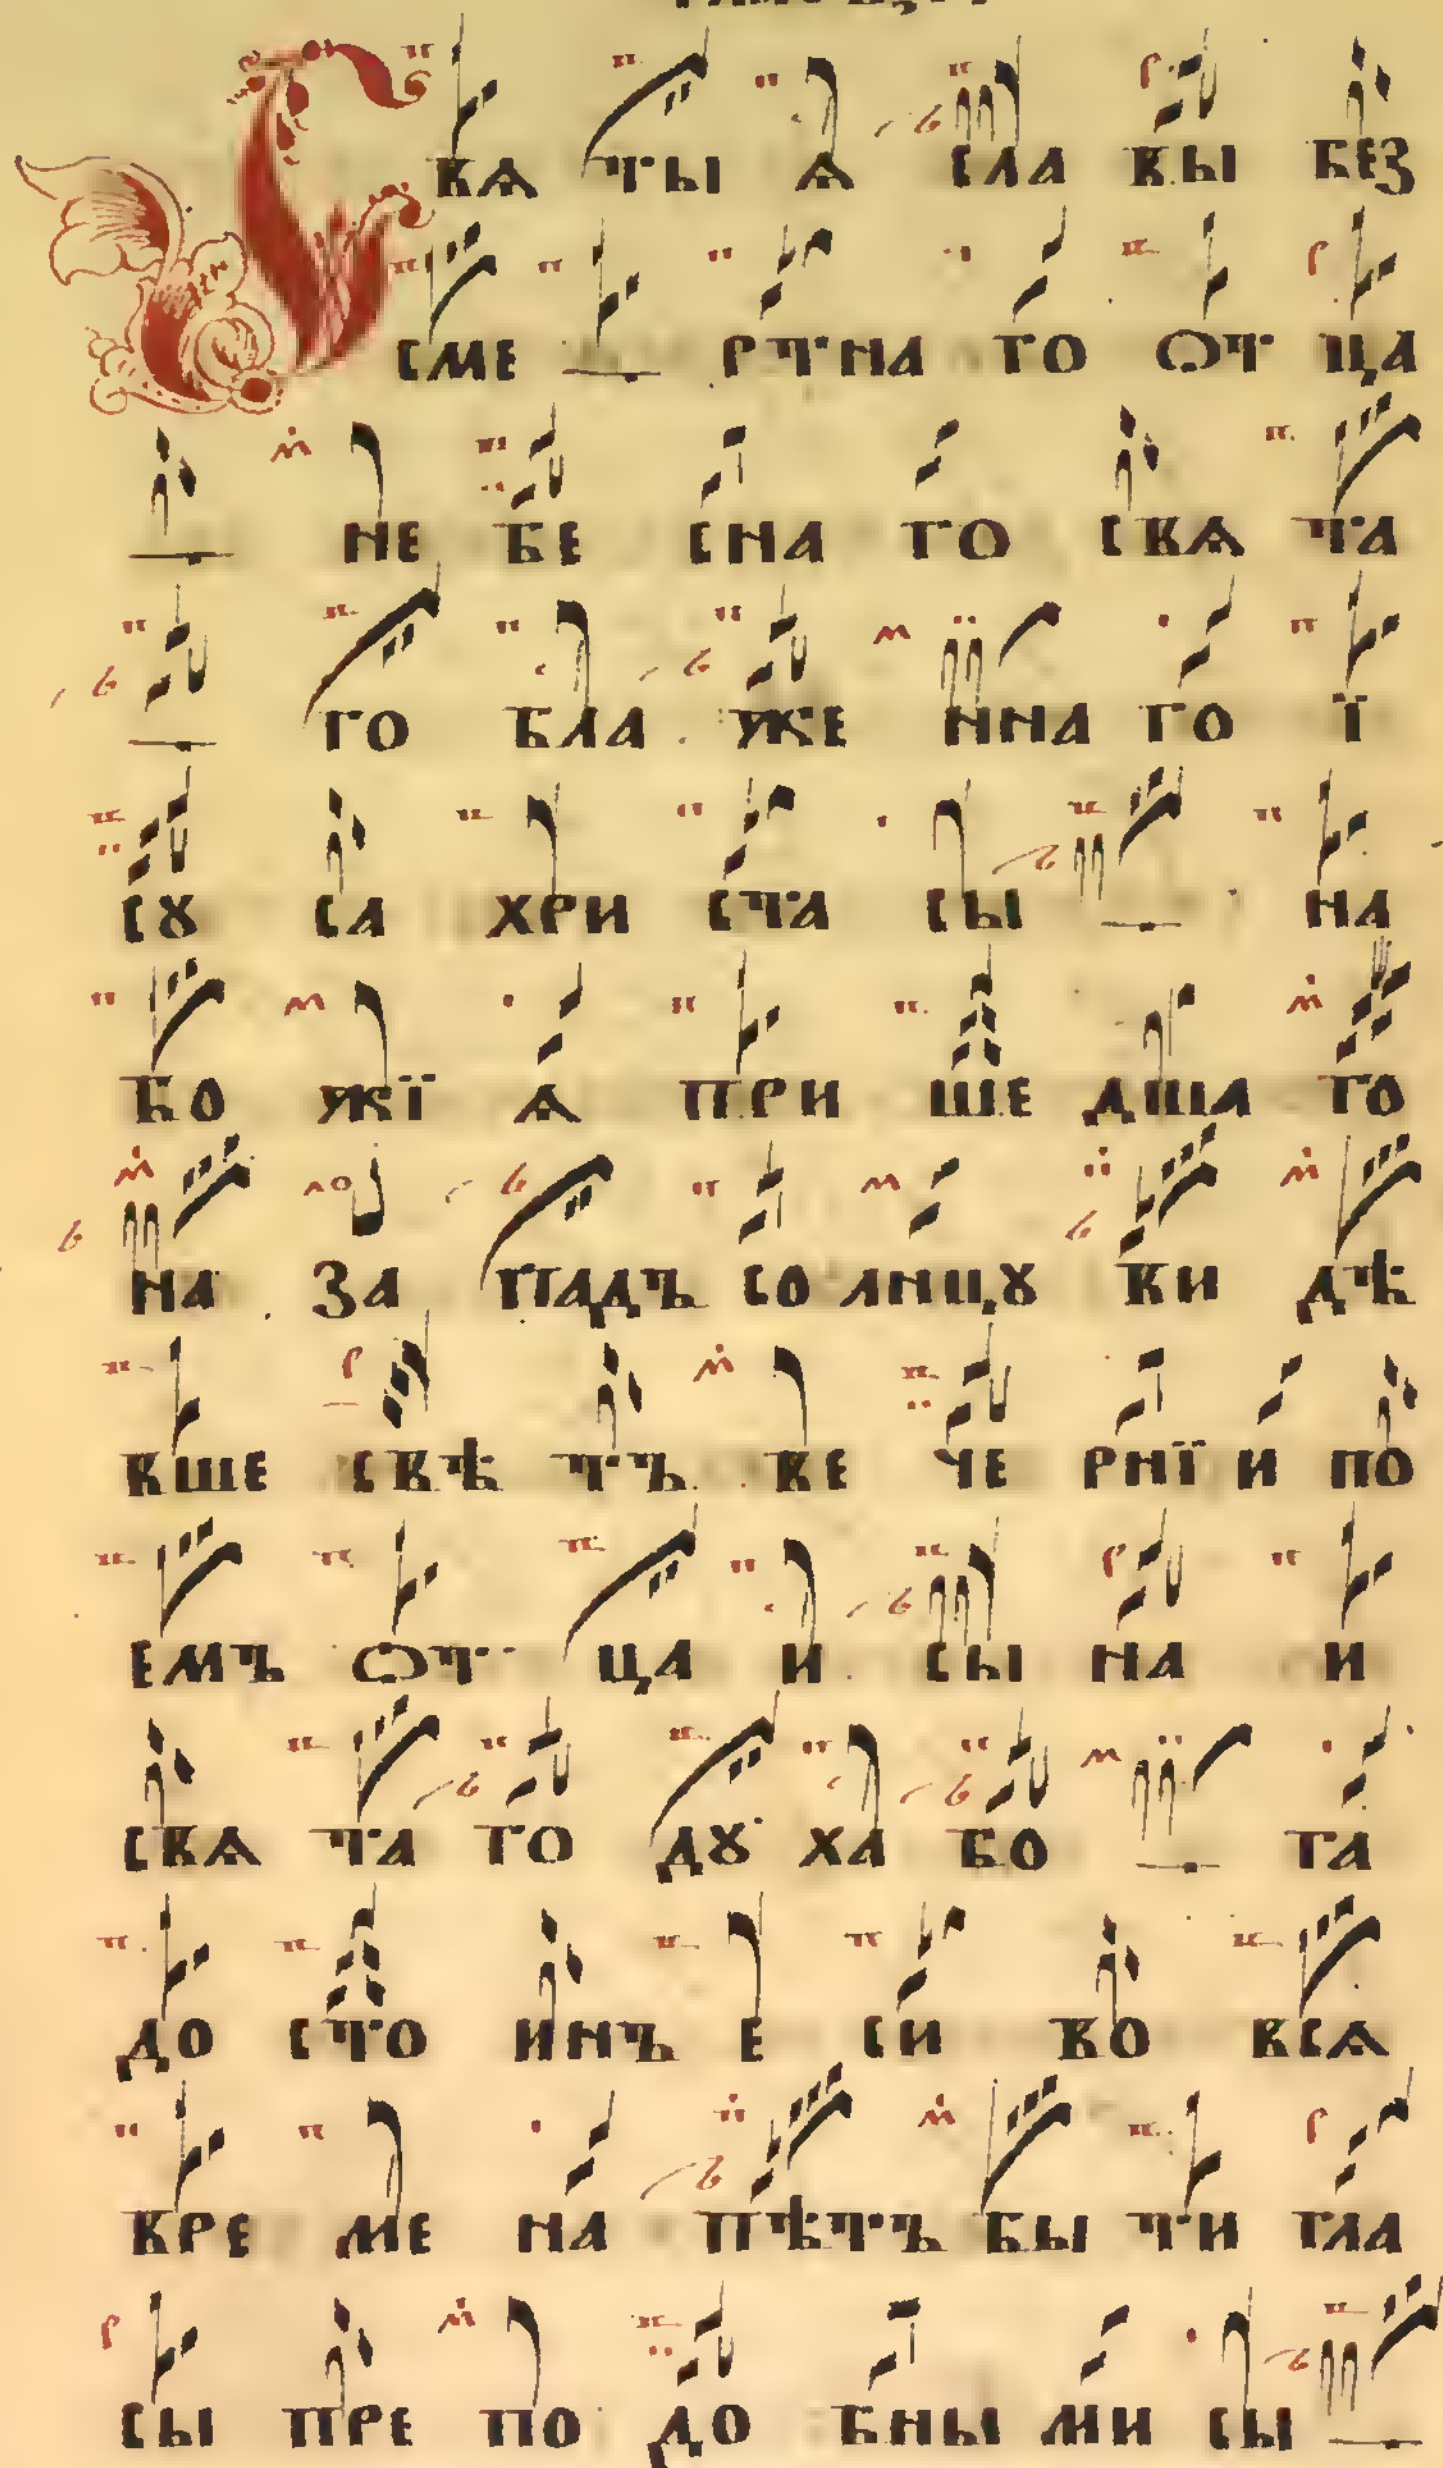 С вѧ ты ѧ сла вы без
сме ртна го отца
не бе сна го свѧ та
го бла же нна го ї
сꙋ са хри ста сы на
бо жї ѧ при ше дша го
на за падъ со лнцꙋ ви дѣ
вше свѣ тъ ве че рнї и по
емъ от ца и сы на и
свѧ та го дꙋ ха бо га
до сто инъ е си во всѧ
вре ме на пѣтъ бы ти гла
сы пре по до бны ми сы